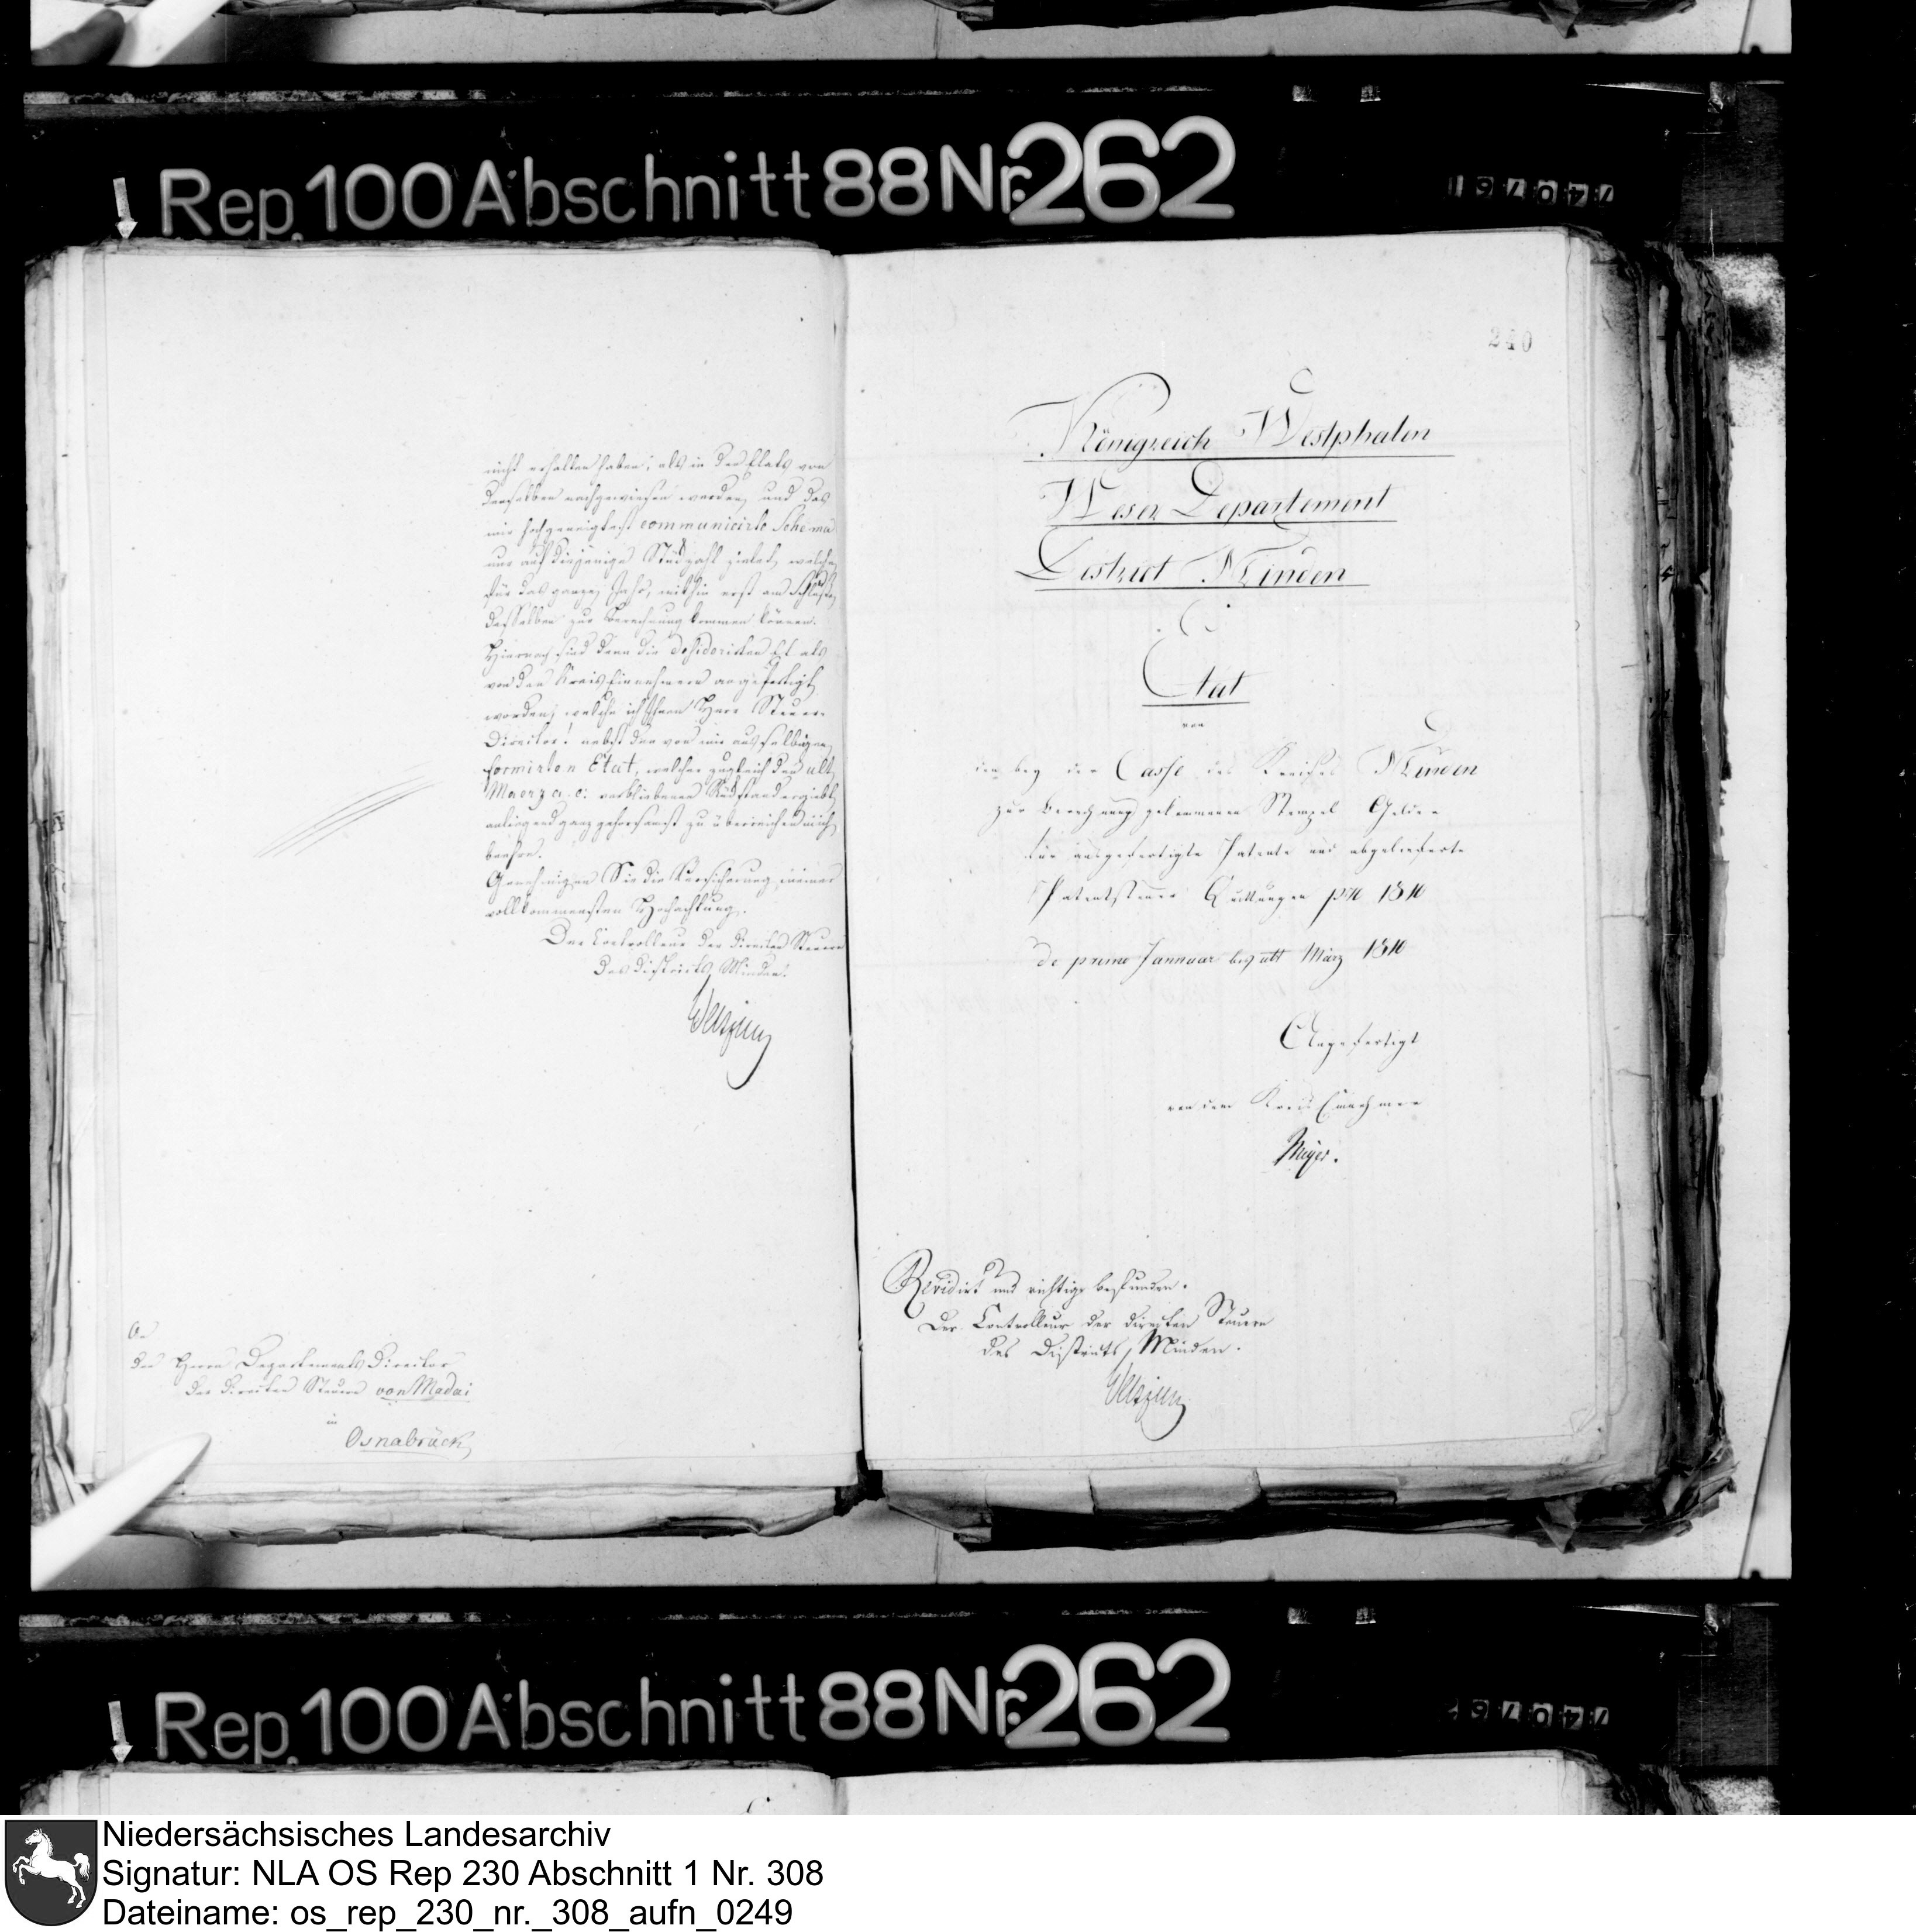 Rep. 100 Abschnitt 88 Nr. 262
nicht erhalten haben, als in den Etats von
denselben nachgewiesen worden, und das
mir hochgeneigtest communicirte Schema
nur auf diejenige Stückzahl zielet, welche
für das ganze Jahr, mithin erst am Schlusse
desselben zur Berechnung kommen können.
Hiernach sind denn die desiderirten Etats
von den Kreis Einnehmern angefertigt
worden, welche ich Ihnen Herr Steuer-
Director! nebst den von mir aus selbigen
formirten Etat, welcher zugleich den ult
Maerz a. c. verbliebenen Rückstand ergiebt,
anliegend ganz gehorsamst zu überreichen mich
beehre.
Genehmigen Sie die Versicherung meiner
vollkommensten Hochachtung.
Der Controlleur der directen Steuern
des Districts Minden.
An
den Herrn Departements Director
der directen Steuern von Madai
in
Osnabrück
240
Königreich Westphalen
Weser Departement
District Minden
Etat
von
den bey der Casse des Kreises Minden
zur Berechnung gekommenen Stempel Gelder
für ausgefertigte Patente und abgelieferte
Patentsteuer Quittungen pro 1810
de primo Januar bis ult März 1810
Angefertigt
von dem Kreis Einnehmer
Meyer.
Revidirt und richtig befunden.
Der Controlleur der directen Steuern
des Districts Minden.
Rep. 100 Abschnitt 88 Nr. 262
Niedersächsisches Landesarchiv
Signatur: NLA OS Rep 230 Abschnitt 1 Nr. 308
Dateiname: os_rep_230_nr._308_aufn_0249